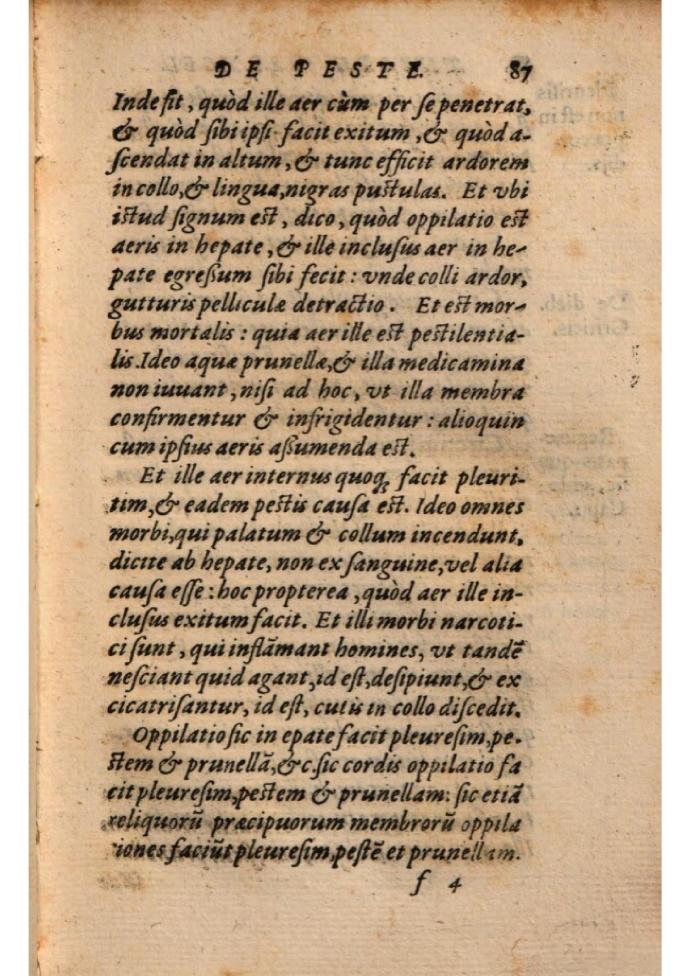 DE PESTE. 87
Inde fit, quòd ille aer cùm per se penetrat,
& quòd sibi ipsi facit exitum, & quòd a-
scendat in altum, & tunc efficit ardorem
in collo, & lingua, nigras pustulas. Et vbi
istud signum est, dico, quòd oppilatio est
aeris in hepate, & ille inclusus aer in he-
pate egreßum sibi fecit: vnde colli ardor,
gutturis pelliculæ detractio. Et est mor-
bus mortalis: quia aer ille est pestilentia-
lis. Ideo aquæ prunellæ, & illa medicamina
non iuuant, nisi ad hoc, vt illa membra
confirmentur & infrigidentur: alioquin
cum ipsius aeris aßumenda est.
Et ille aer internus quoq; facit pleuri-
tim, & eadem pestis causa est. Ideo omnes
morbi, qui palatum & collum incendunt,
dicite ab hepate, non ex sanguine, vel alia
causa esse: hoc propterea, quòd aer ille in-
clusus exitum facit. Et illi morbi narcoti-
ci sunt, qui inflãmant homines, vt tandẽ
nesciant quid agant, id est, desipiunt, & ex
cicatrisantur, id est, cutis in collo discedit.
Oppilatio sic in epate facit pleuresim, pe-
stem & prunellã, &c. sic cordis oppilatio fa
cit pleuresim, pestem & prunellam: sic etiã
reliquorũ præcipuorum membrorũ oppila
tiones faciũt pleuresim, pestẽ et prunellam.
f 4